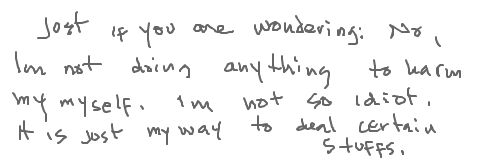 Just if you are wondering: No,
Im not doing anything to harm
my myself. Im not so idiot.
It is just my way to deal certain
stuffs.